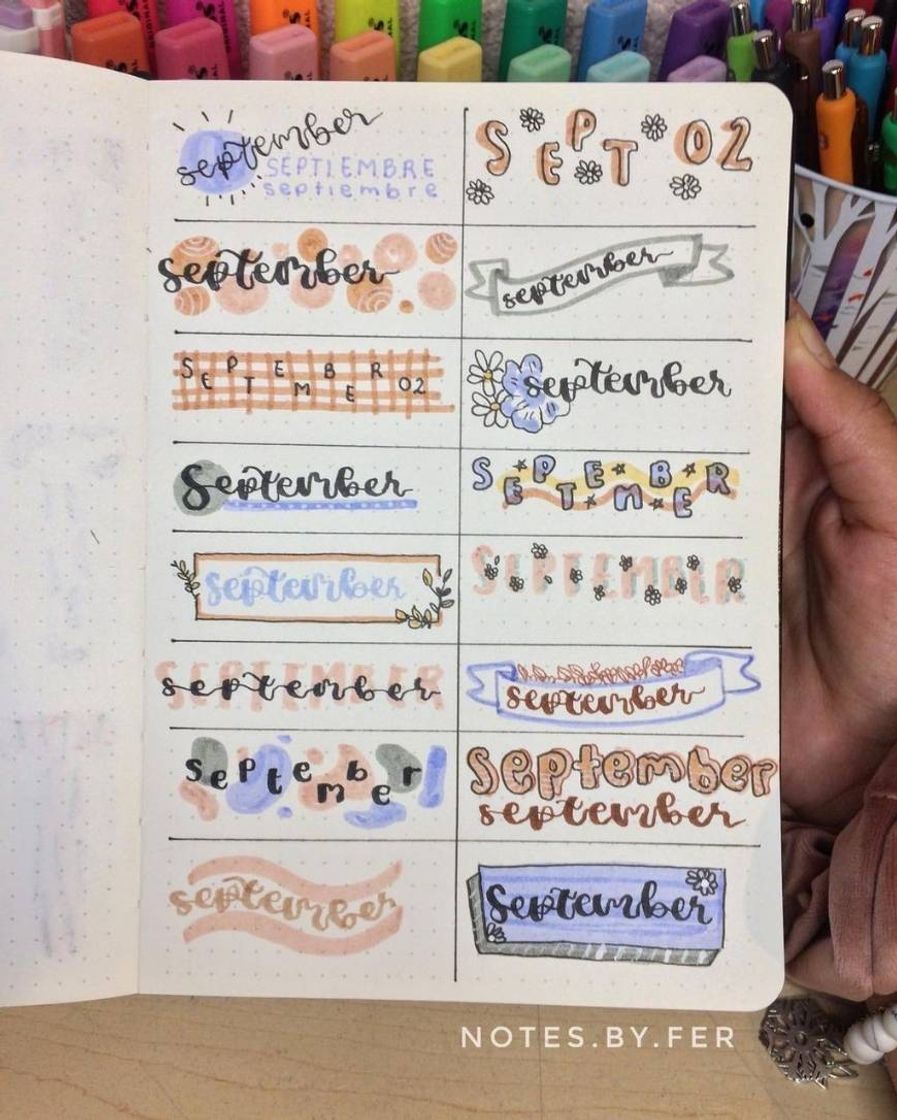 september
SEPTIEMBRE
septiembre
SEPT 02
september
september
SEPTEMBER 02
september
September
SEPTEMBER
september
SEPTEMBER
SEPTEMBER
september
september
september
september
september
september
September
NOTES.BY.FER